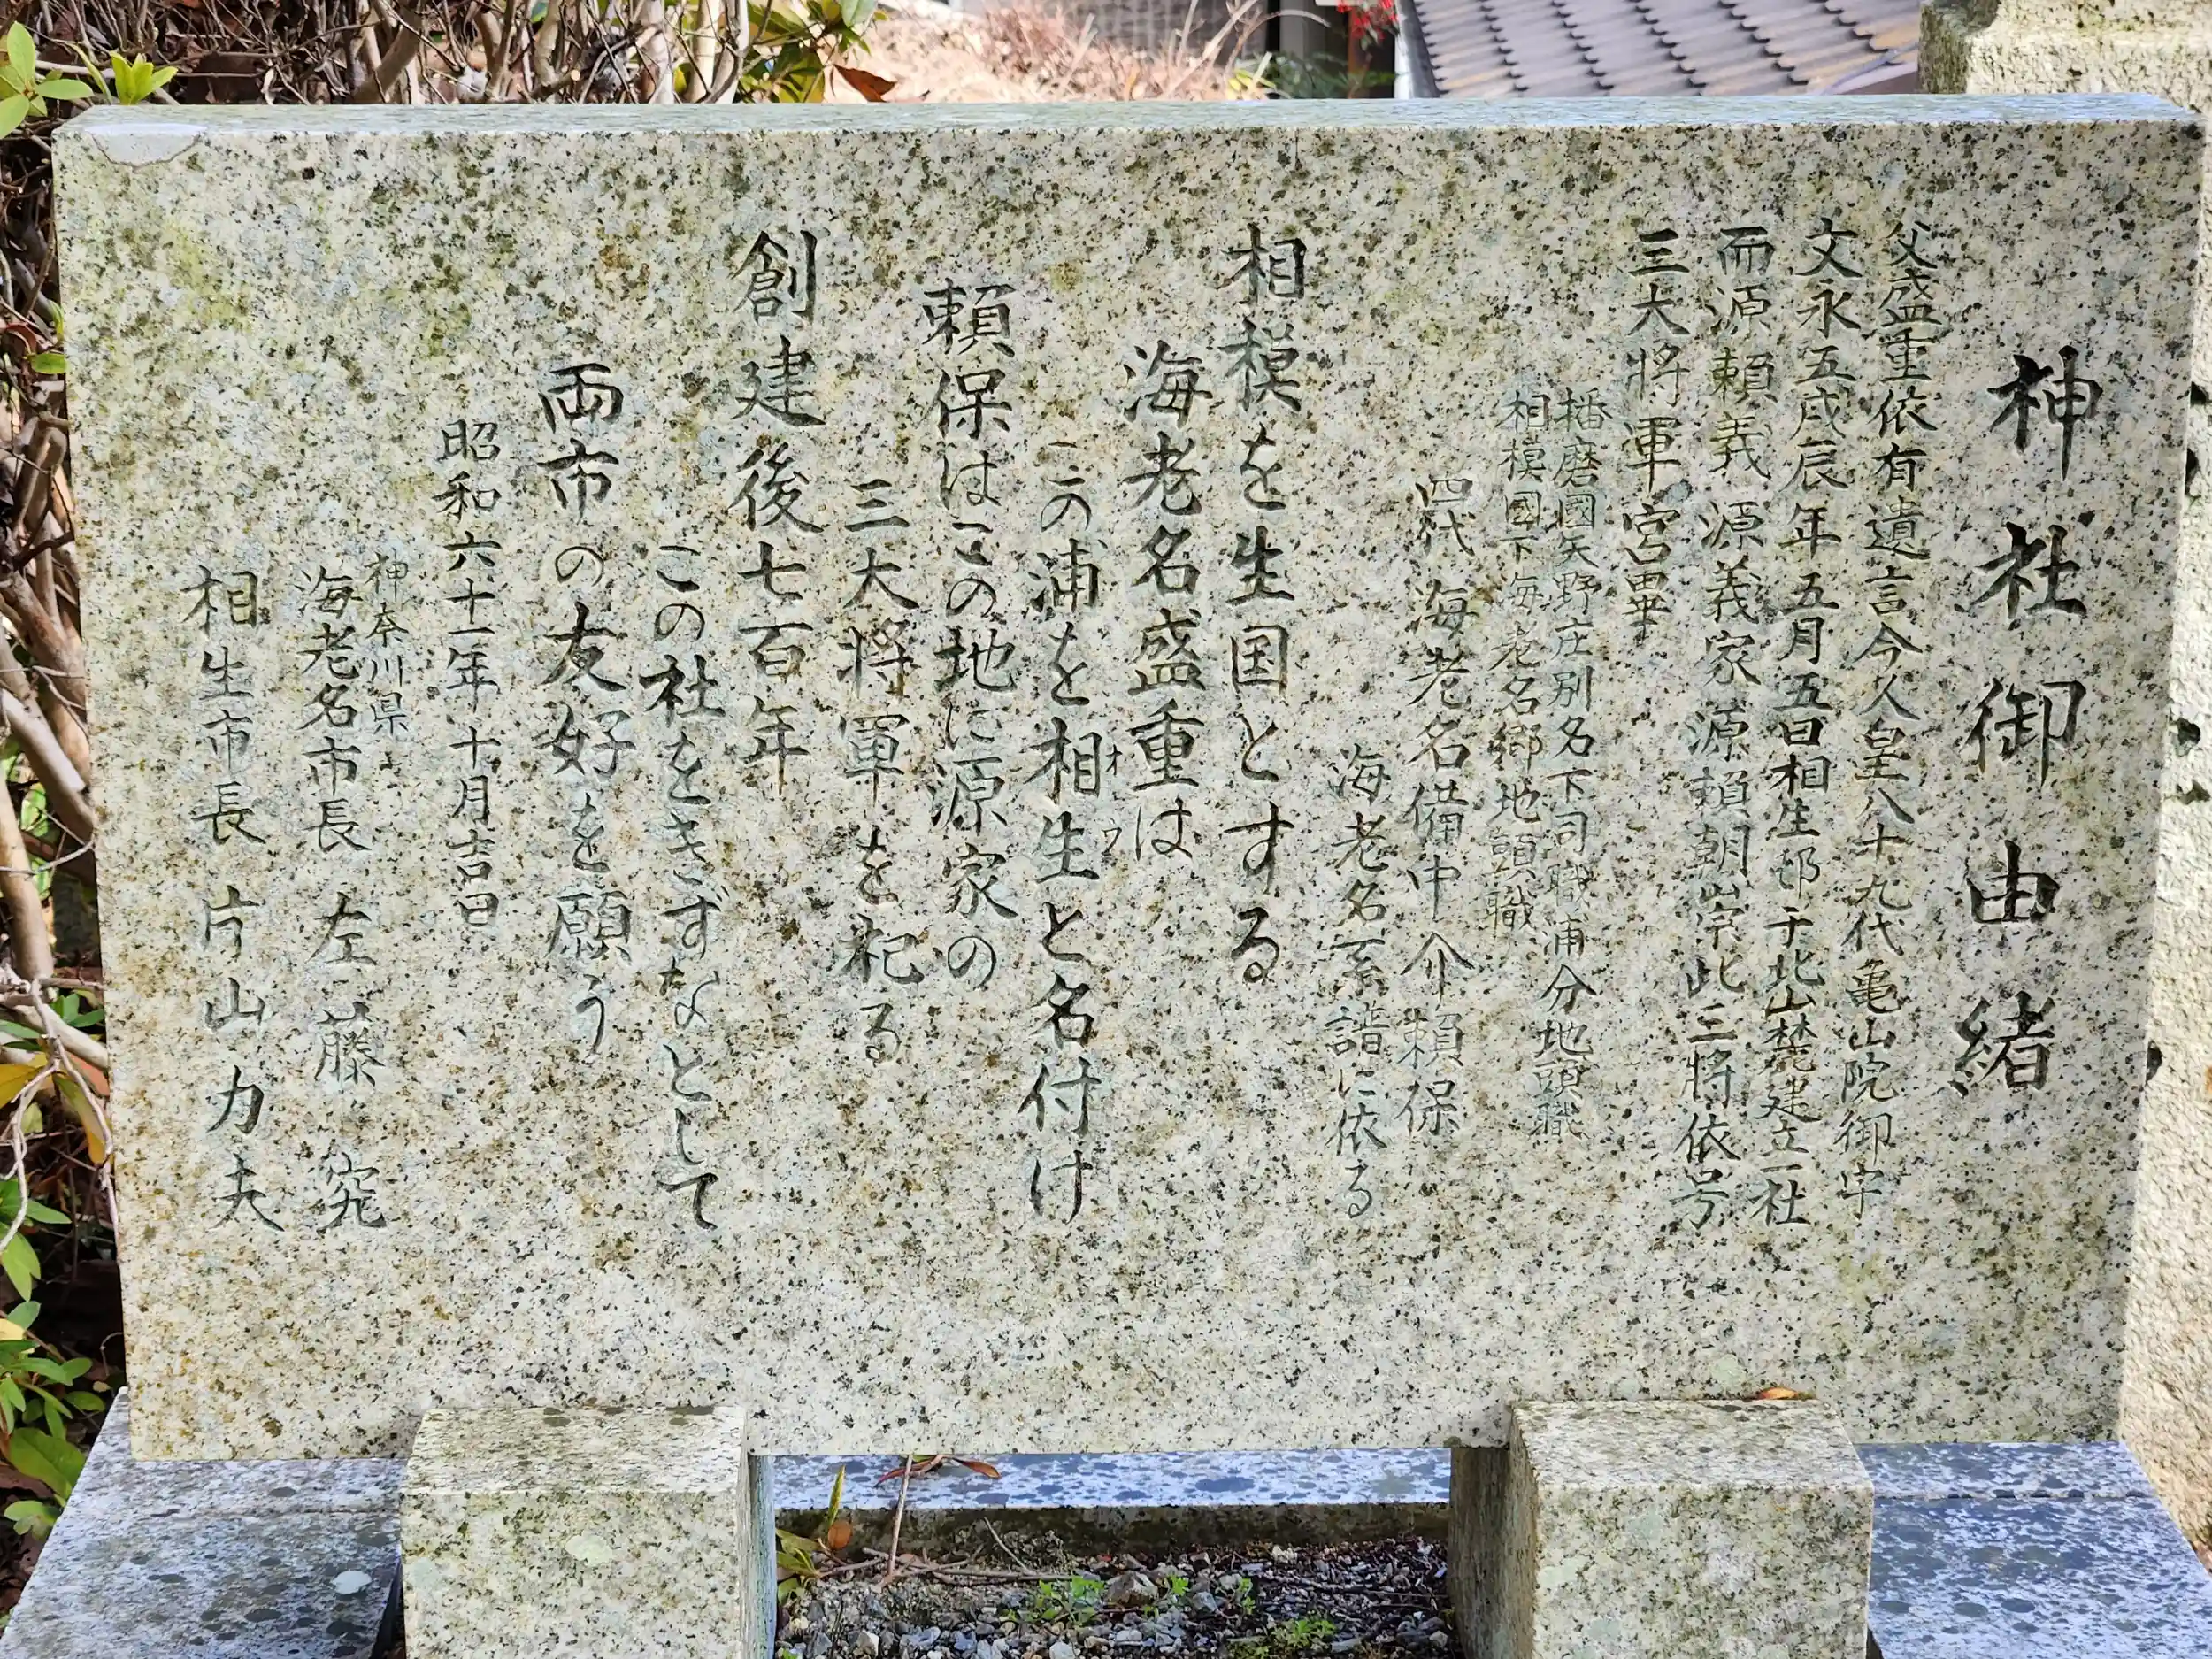 神社御由緒
父盛重依有遺言今人皇八十九代亀山院御宇
文永五戌辰年五月五日相生邨于北山麓建立一社
而源頼義源義家源頼朝崇此三将依号
三大将軍宮畢
播磨國矢野庄別名下司職浦分地頭職
相模國下海老名郷地頭職
四代海老名備中介頼保
海老名系譜に依る
相模を生国とする
海老名盛重は
この浦を相生と名付け
オウ
頼保はこの地に源家の
三大将軍を祀る
創建後七百年
この社をきずなとして
両市の友好を願う
昭和六十一年十月吉日
神奈川県
海老名市長 左藤 究
相生市長 片山力夫